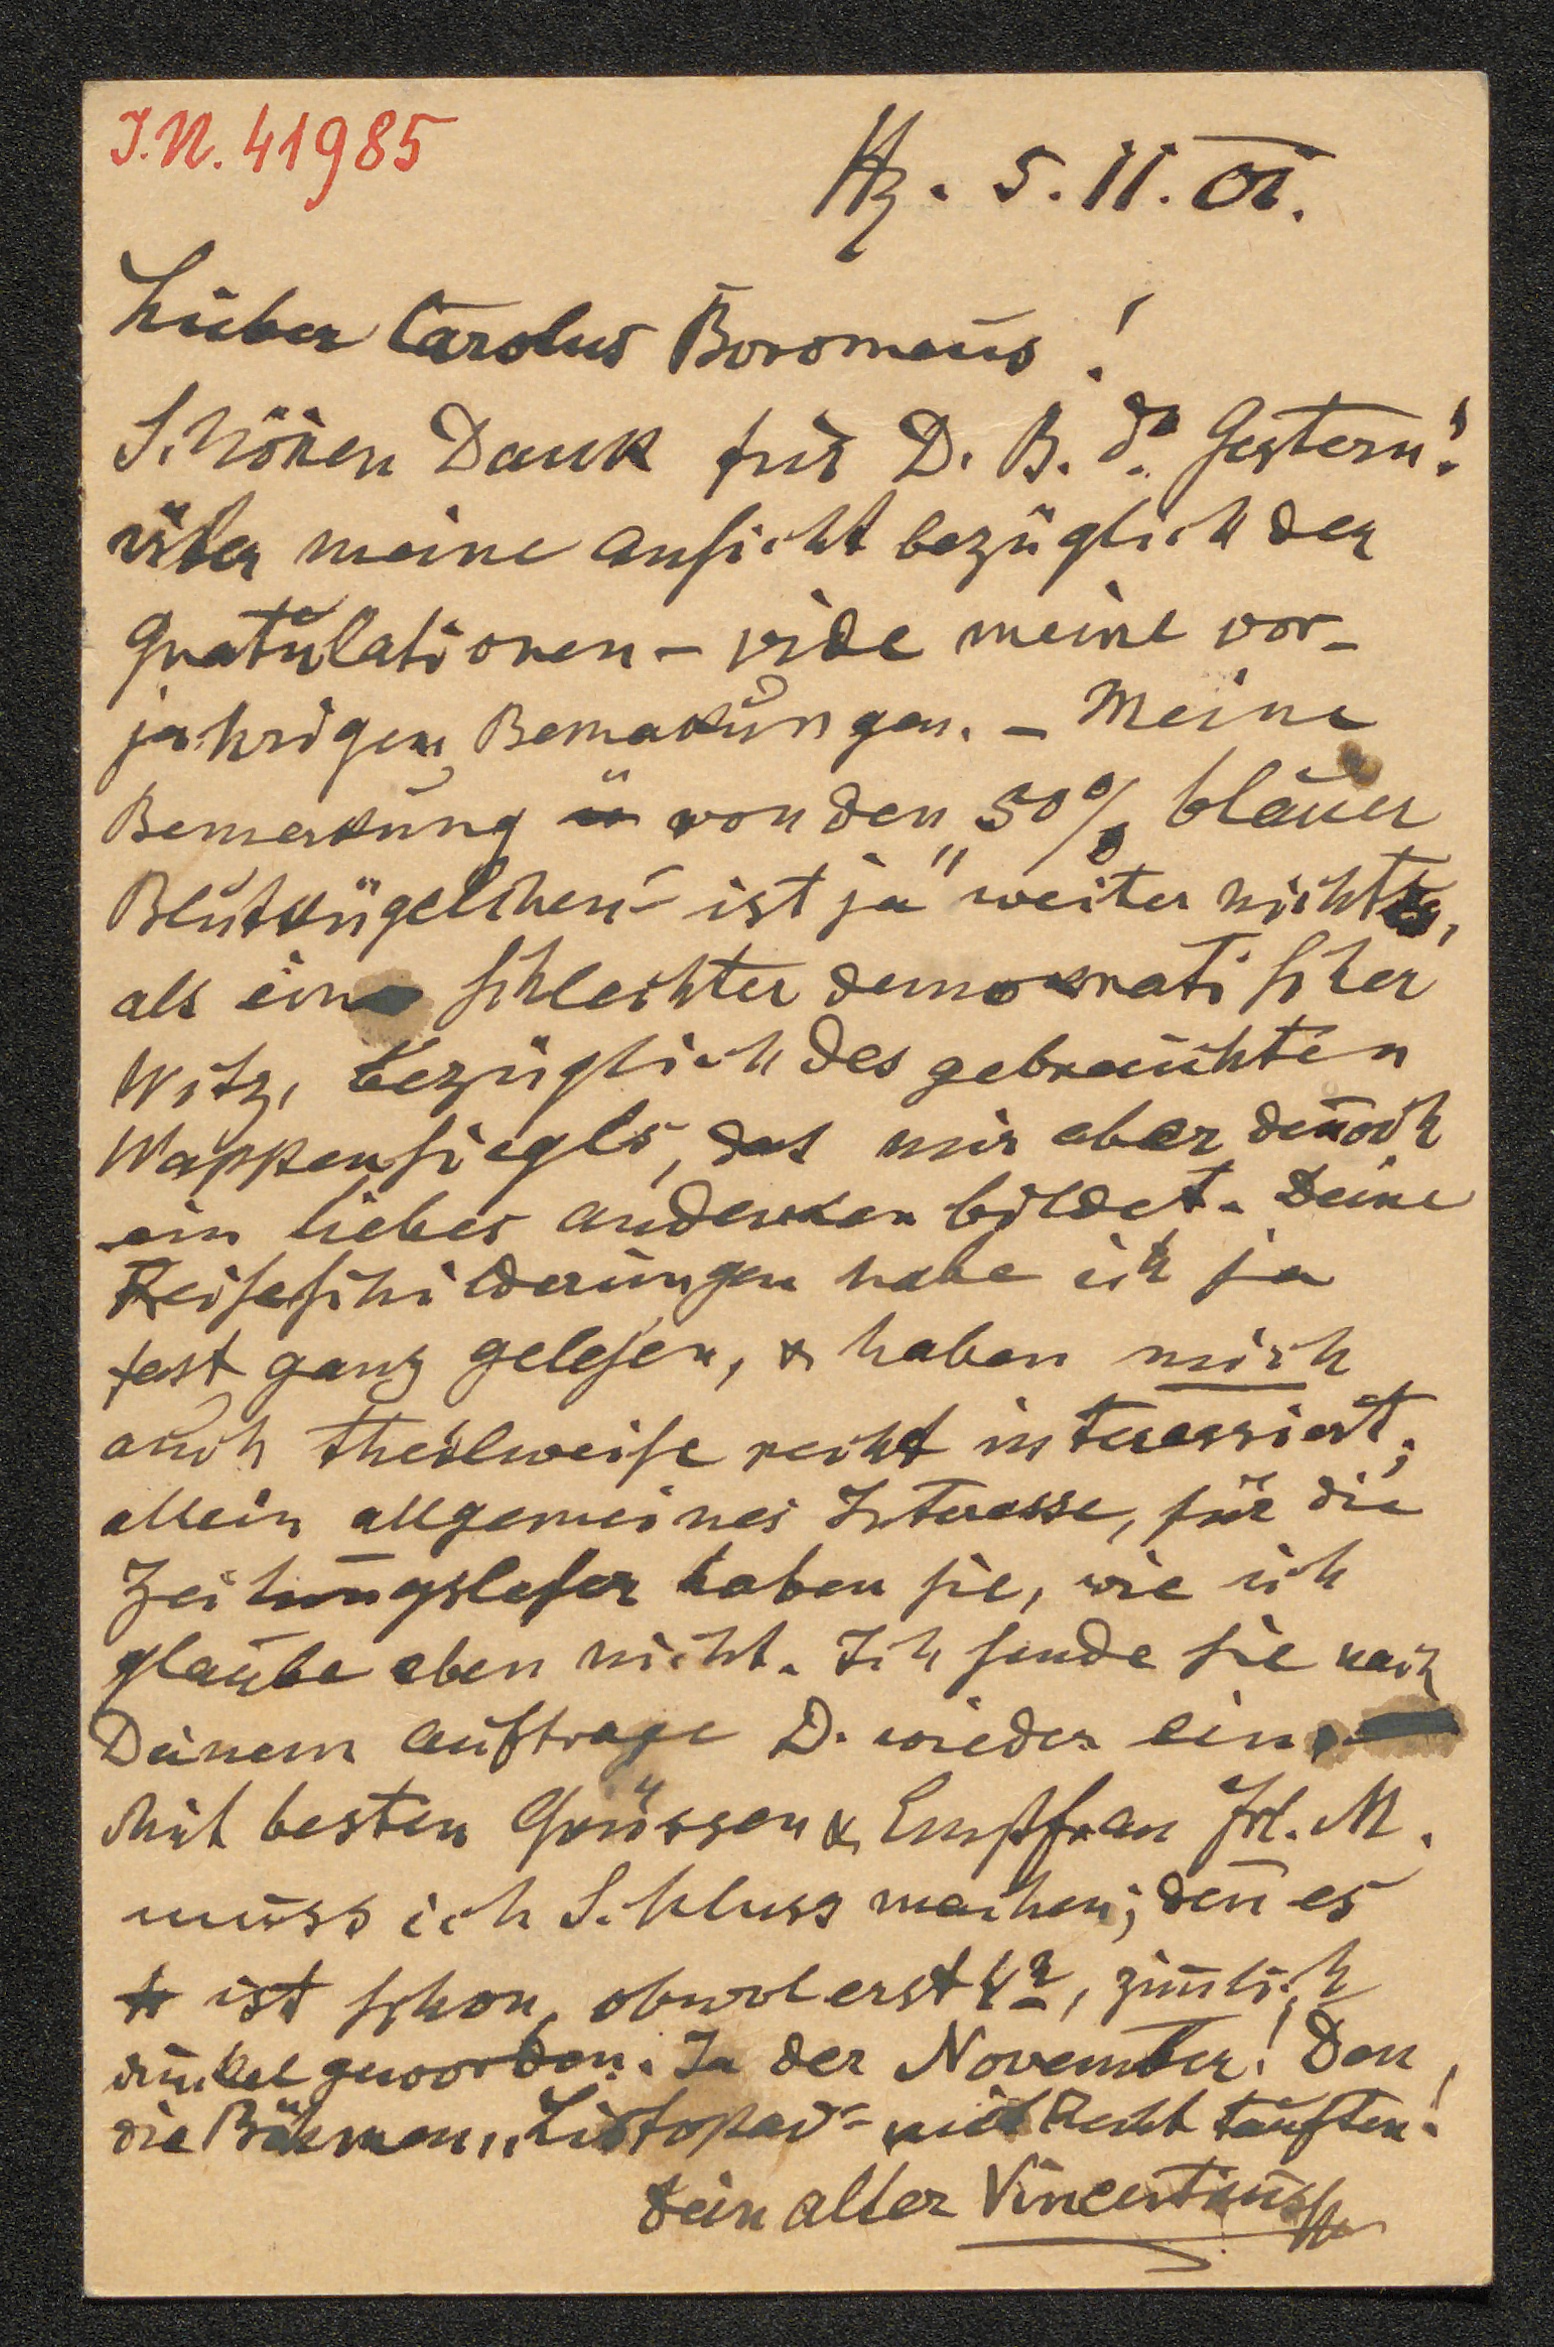 I.N. 41985
Hz. 5.11.01.
Lieber Carolus Boromeus!
Schönen Dank für D. B. do Gestern!
über meine ansicht bezüglich der
Gratulationen - vide meine vor-
jahrigen Bemerkungen. - Meine
Bemerkung von den „50% blauer
Blutkügelchen" ist ja weiter nichts,
als ein schlechter demokratischer
Witz, bezüglich des gebrauchten
Wappensiegls, das mir aber deñoch
ein liebes andenken bildet. Deine
Reiseschilderungen habe ich ja
fast ganz gelesen, & haben mich
auch theilweise recht interessiert;
allein allgemeines Interesse, für die
Zeitungsleser haben sie, wie ich
glaube eben nicht. Ich sende sie nach
Deinem auftrage D. wieder ein.
Mit besten Grüssen & Empf. an Frl. M.
muss ich Schluss machen; deñ es
ist schon, obwol erst 4h, zimlich
dunkel geworden. Ja der November! Den
die Böhmen „Listopad" mit Recht tauften!
Dein alter Vincentius